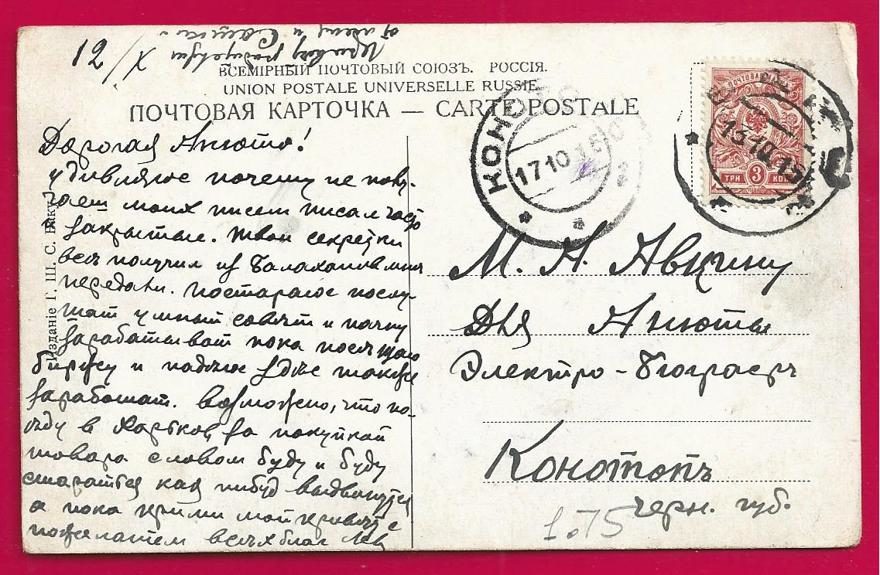 12/X
ВСЕМІРНЫЙ ПОЧТОВЫЙ СОЮЗЪ. РОССІЯ.
UNION POSTALE UNIVERSELLE RUSSIE
ПОЧТОВАЯ КАРТОЧКА — CARTE POSTALE
Дорогая Анюта!
удивляюс почему не полу-
чает моих писем писал часто
закрытые. Твои секретки
всѣ получил из
передали. постараюс послу-
шат умный совѣт и начну
зарабатыват пока посѣщаю
биржу и надѣюс здѣс также
заработат. Возможно, что по-
ѣду в Харьков за покупкай
товара словом буду и буду
старатся как нибуд выдвинутся
а пока прими мой привѣт с
пожеланием всѣх благ Лев
Изданіе Г. Ш. С. Баку
КОНОТО
17 10 15
13 10 15
ПОЧТОВАЯ
ТРИ 3 КОП
М. Н. Авкину
Для Анюты
Электро-Біографъ
Конотопъ
черн. губ.
1.75